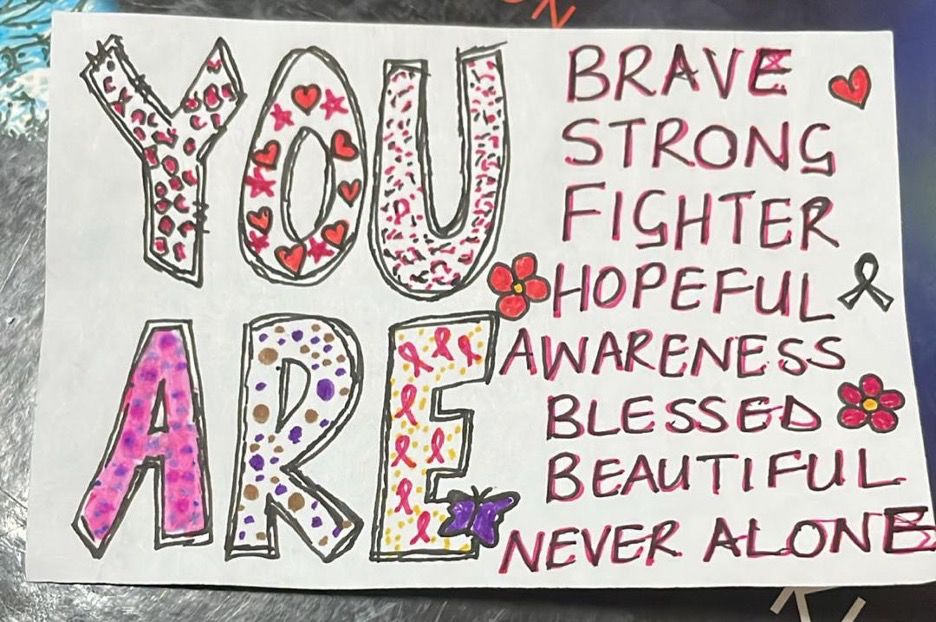 YOU
ARE
BRAVE
STRONG
FIGHTER
HOPEFUL
AWARENESS
BLESSED
BEAUTIFUL
NEVER ALONE